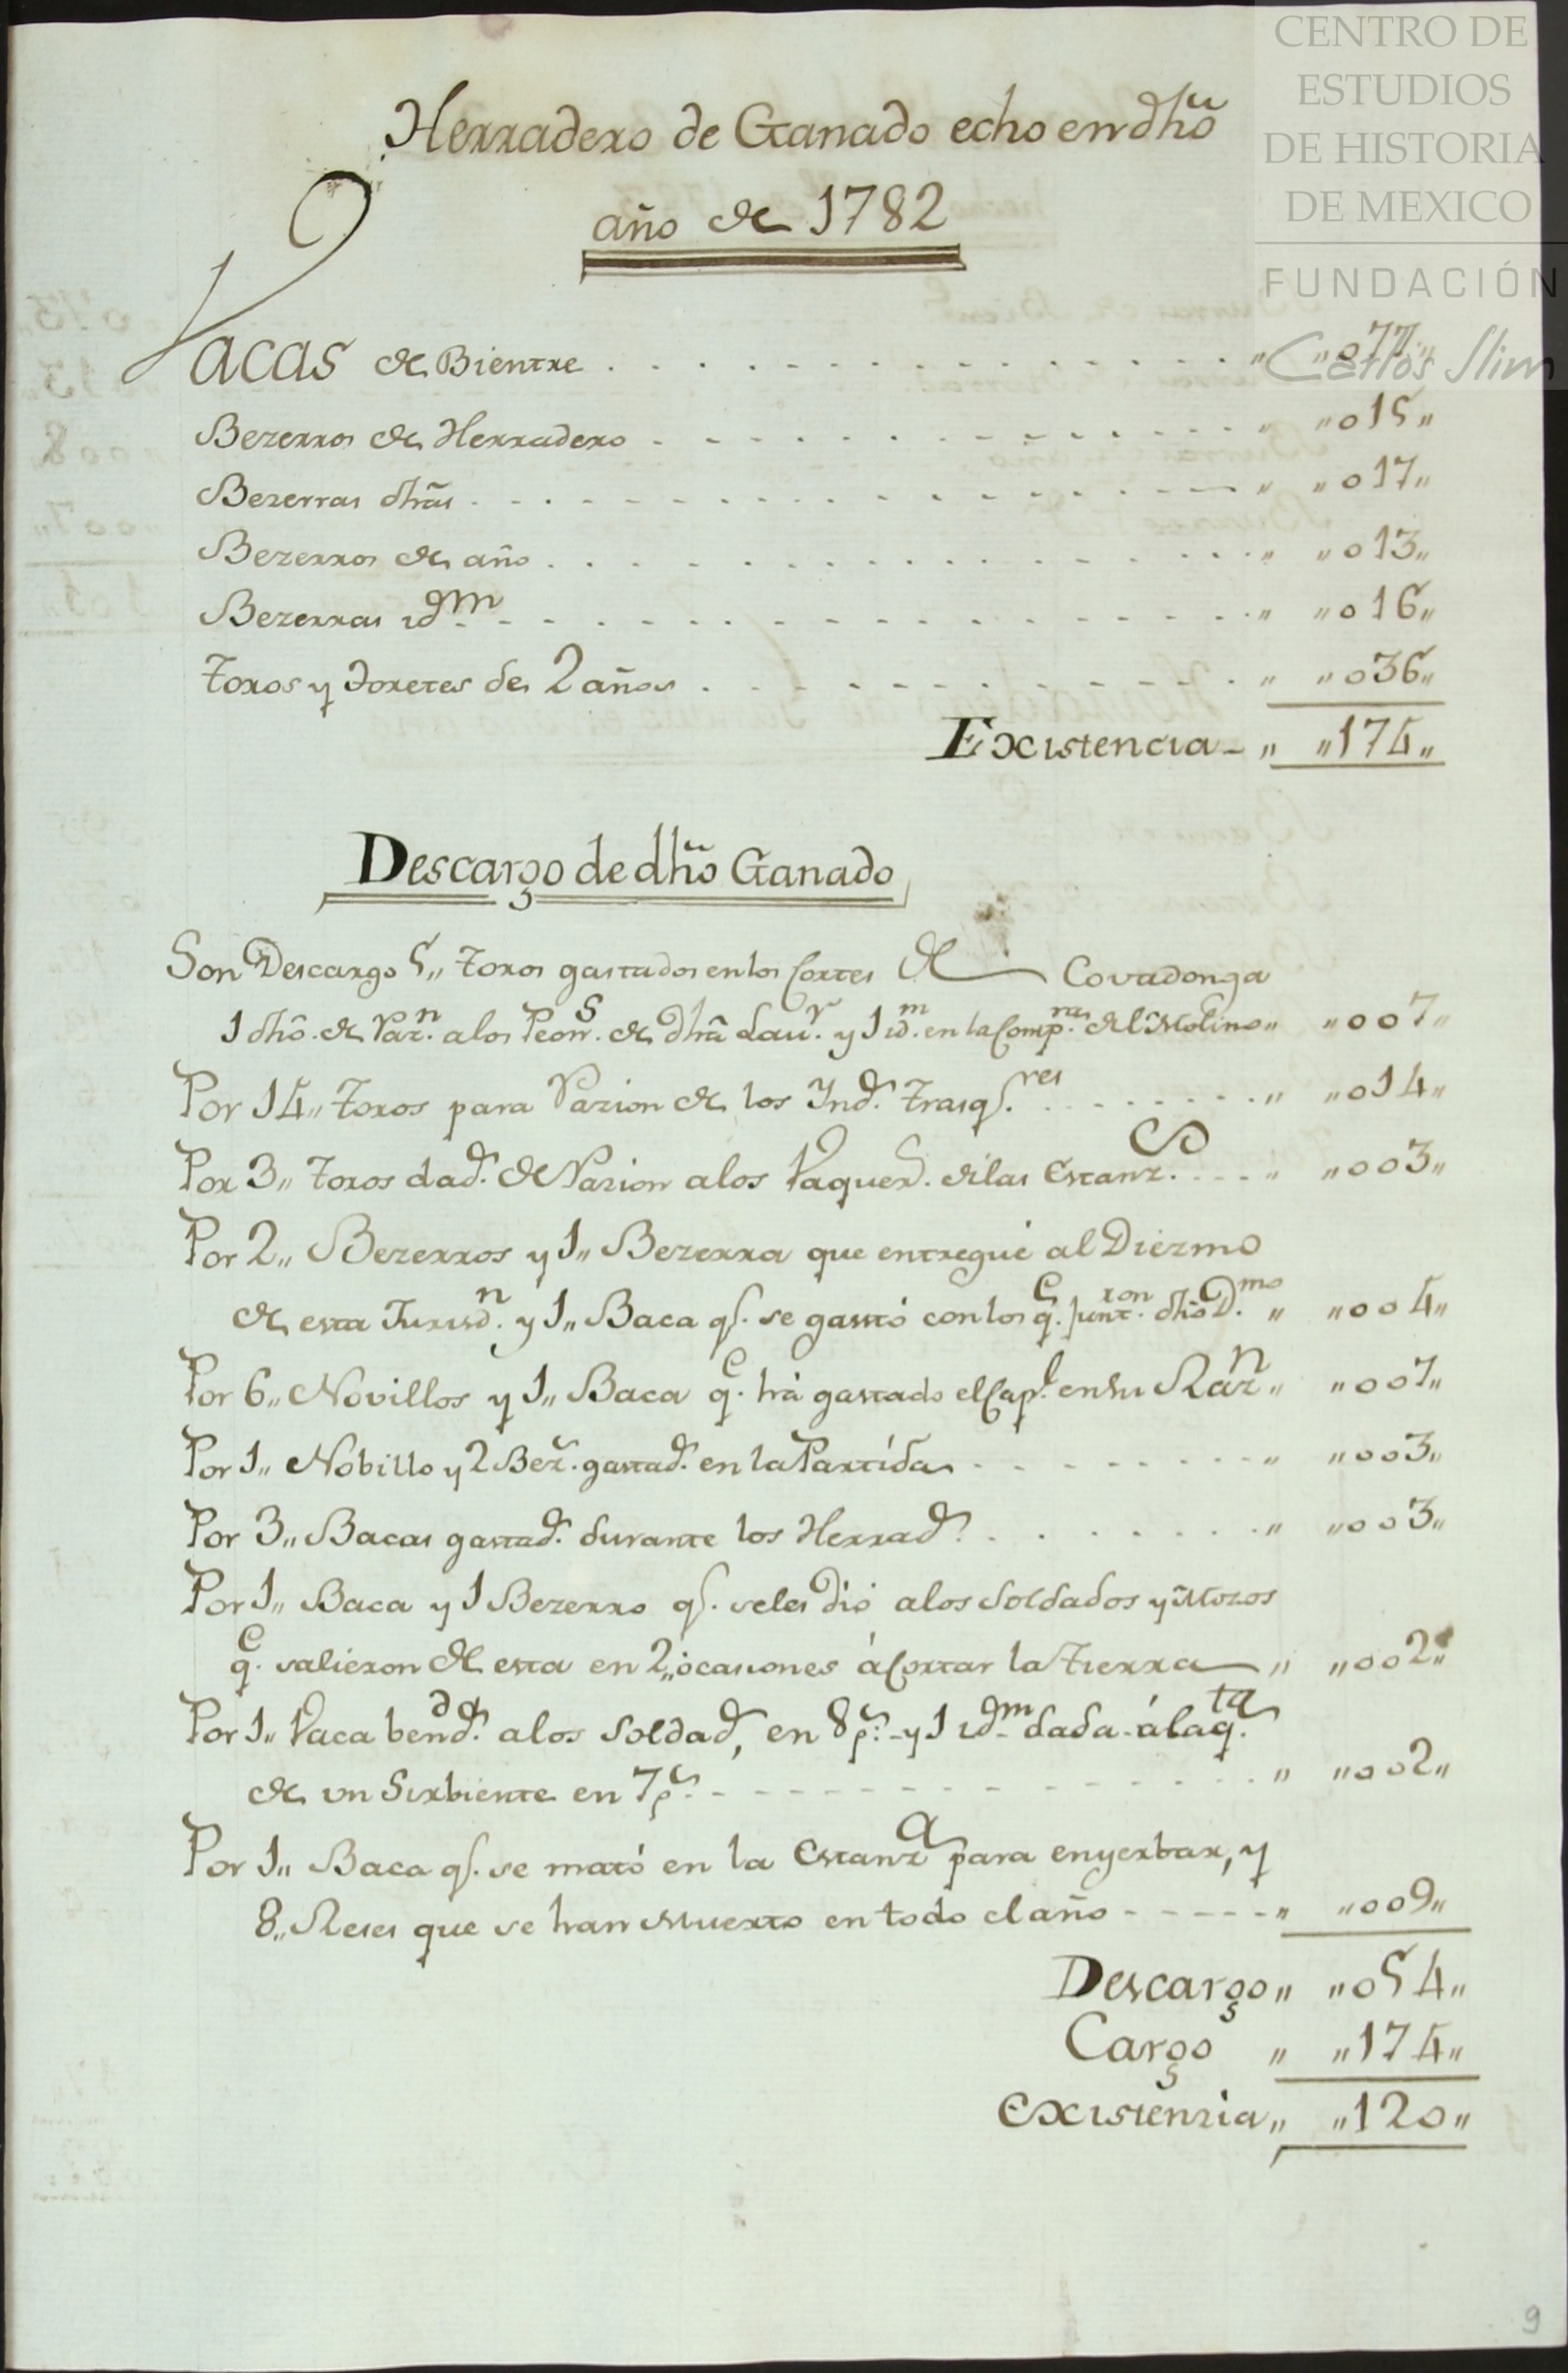 CENTRO DE
ESTUDIOS
DE HISTORIA
DE MEXICO
FUNDACIÓN
Carlos Slim
Herradero de Ganado echo en dho
año de 1782
Vacas de Bientre . . . . . . . . . . . . . . „ „077„
Bezerros de Herradero - - - - - - - - - - - - „ „015„
Bezerras dhãs - - - - - - - - - - - - - - - „ „017„
Bezerros de año . . . . . . . . . . . . . . . „ „013„
Bezerras idm - - - - - - - - - - - - - - - „ „016„
Toros y Toretes de 2 años . - - - - - - - - „ „036„
Existencia - „ „174„
Descargo de dho Ganado
Son Descargo 5„ Toros gastados en los Cortes de Covadonga
1 dho. de Razn. a los Peons. de dhã Lavr. y 1 idm. en la Compras. del Molino„ „007„
Por 14„ Toros para Razion de los Ynds. Trasqres. . . . . . . . . „ „014„
Por 3„ Toros dads. de Razion a los Vaquers. de las Estanzs. - - - - „ „003„
Por 2„ Bezerros y 1„ Bezerra que entregué al Diezmo
de esta Jurisdn. y 1„ Baca q. se gastó con los qe. juntron. dho Dmo. „ „004„
Por 6„ Novillos y 1„ Baca qe. há gastado el Capl. en su Razn „ „007„
Por 1„ Nobillo y 2 Bezs. gastads. en la Partida - - - - - - - - „ „003„
Por 3„ Bacas gastads. durante los Herrads. . . . . . . . „ „003„
Por 1„ Baca y 1 Bezerro q. seles dió a los Soldados y Mozos
qe. salieron de esta en 2„ ócasiones á Cortar la Tierra „ „002„
Por 1„ Vaca bendda. a los Soldads, en 8 ps. - y 1 idm - dada á la qta.
de un Sirbiente en 7 ps. - - - - - - - - - - - - „ „002„
Por 1„ Baca q. se mató en la Estanza para enyerbar, y
8„ Reses que se han Muerto en todo el año - - - - - „ „009„
Descargo „ „054„
Cargo „ „174„
Existenzia „ „120„
9